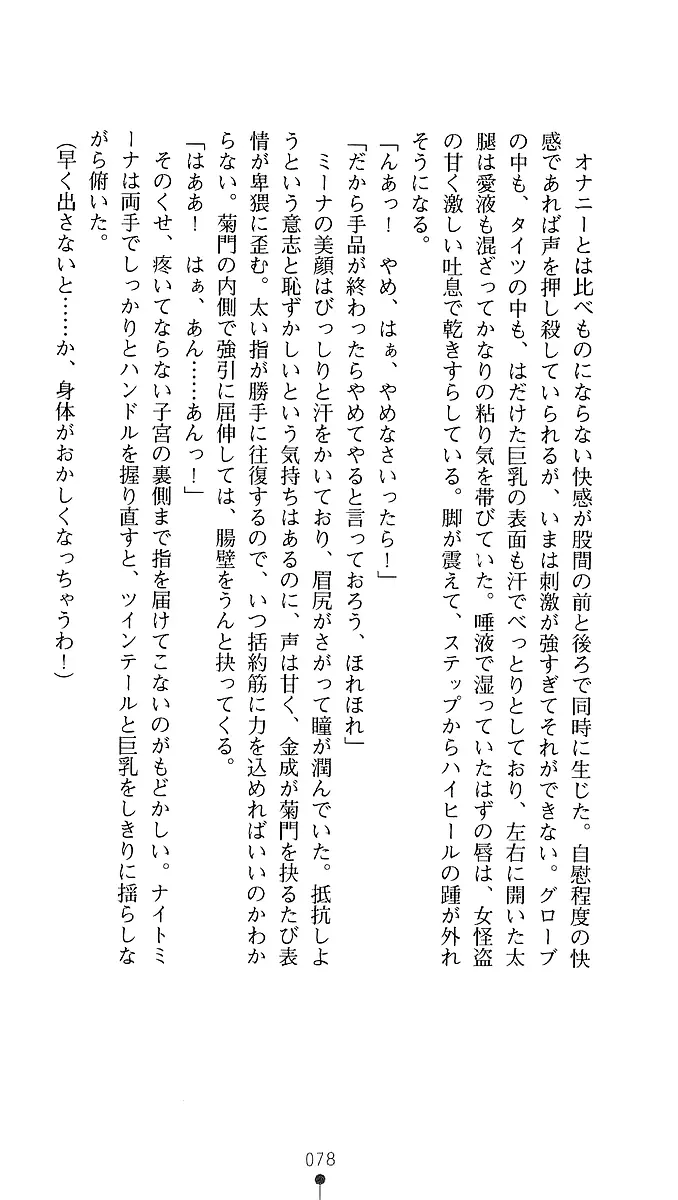 オナニーとは比べものにならない快感が股間の前と後ろで同時に生じた。自慰程度の快
感であれば声を押し殺していられるが、いまは刺激が強すぎてそれができない。グローブ
の中も、タイツの中も、はだけた巨乳の表面も汗でべっとりとしており、左右に開いた太
腿は愛液も混ざってかなりの粘り気を帯びていた。唾液で湿っていたはずの唇は、女怪盗
の甘く激しい吐息で乾きすらしている。脚が震えて、ステップからハイヒールの踵が外れ
そうになる。
「んあっ!　やめ、はぁ、やめなさいったら!」
「だから手品が終わったらやめてやると言っておろう、ほれほれ」
ミーナの美顔はびっしりと汗をかいており、眉尻がさがって瞳が潤んでいた。抵抗しよ
うという意志と恥ずかしいという気持ちはあるのに、声は甘く、金成が菊門を抉るたび表
情が卑猥に歪む。太い指が勝手に往復するので、いつ括約筋に力を込めればいいのかわか
らない。菊門の内側で強引に屈伸しては、腸壁をうんと抉ってくる。
「はああ!　はぁ、あん……あんっ!」
そのくせ、疼いてならない子宮の裏側まで指を届けてこないのがもどかしい。ナイトミ
ーナは両手でしっかりとハンドルを握り直すと、ツインテールと巨乳をしきりに揺らしな
がら俯いた。
(早く出さないと……か、身体がおかしくなっちゃうわ!)
078